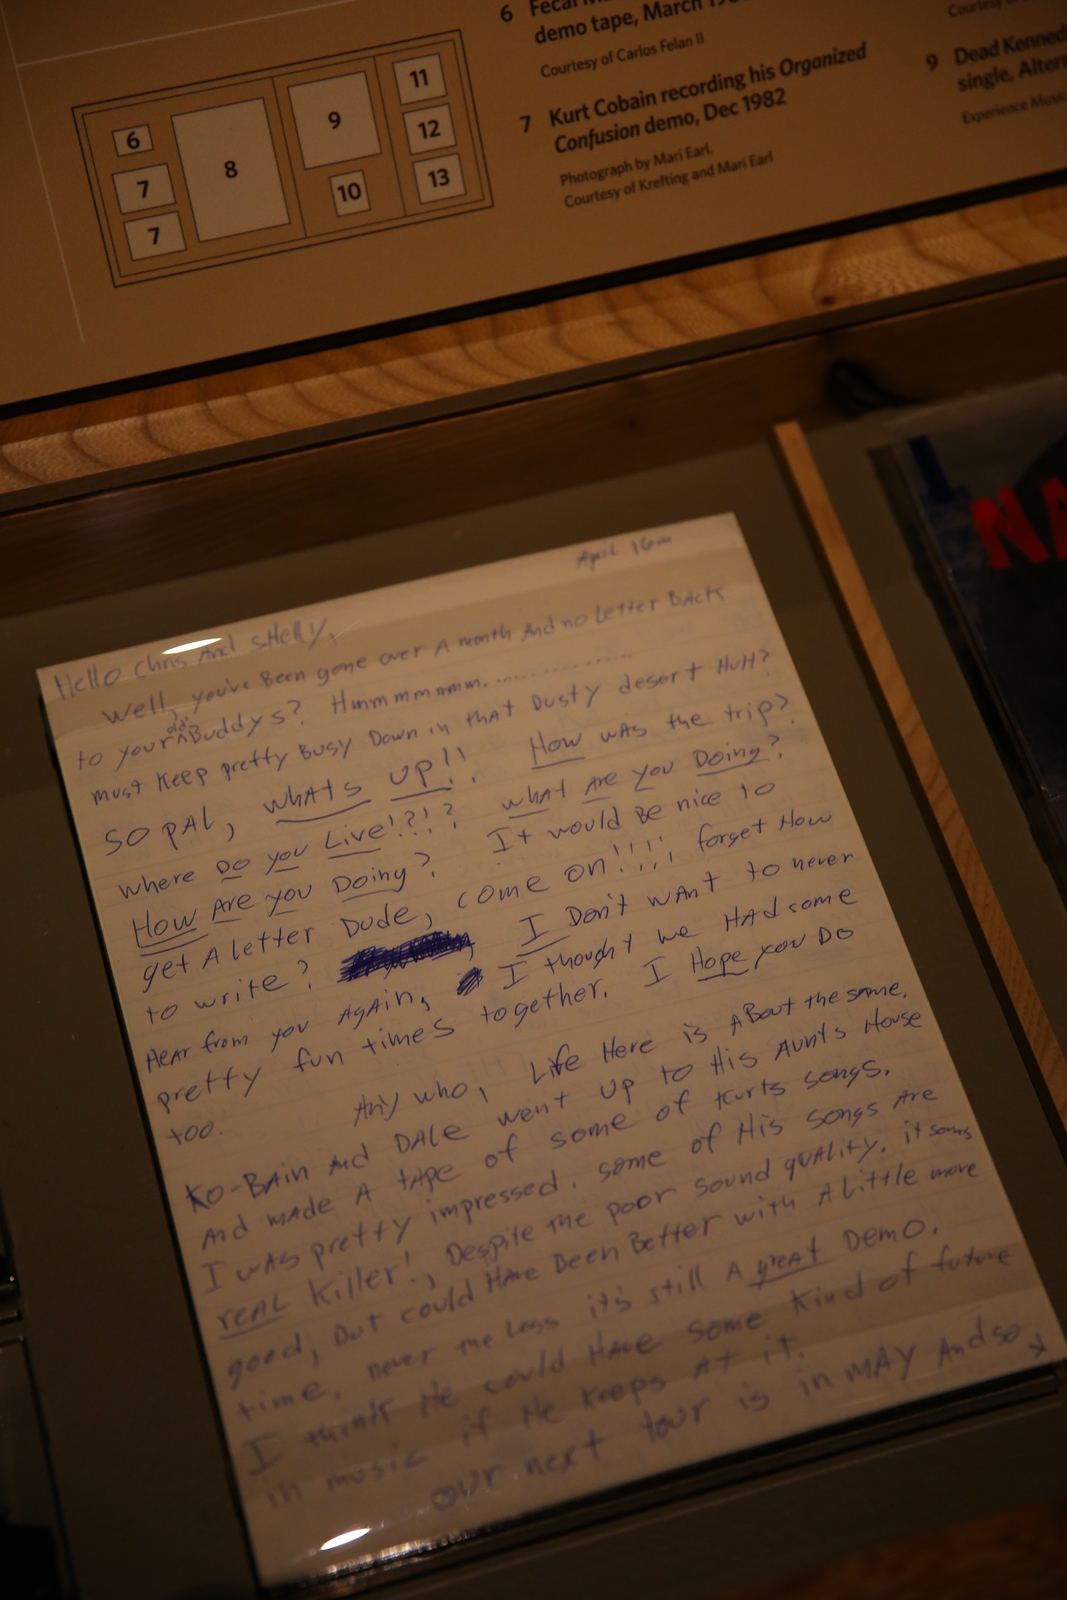 6 Fecal
demo tape, March
Courtesy of Carlos Felan II
7 Kurt Cobain recording his Organized
Confusion demo, Dec 1982
Photograph by Mari Earl.
Courtesy of Krefting and Mari Earl
9 Dead
single,
6
7
7
8
9
10
11
12
13
NA
April 16
Hello Chris And Shelly,
Well, you've Been gone over A month And no Letter BACK
to your old Buddys? Hmmmmmmm..............
must keep pretty Busy Down in that Dusty desert HuH?
SO PAL, whats UP!! How was the trip?
where Do you Live!?!? what Are you Doing?
How Are you Doing? It would Be nice to
get A letter Dude, come on!!!! forget How
to write? I Don't want to never
Hear from you AgAin, I thought we HAd some
pretty fun times together. I Hope you DO
too.
Any who, Life Here is About the same.
KO-BAin And DALe went up to His Aunts House
And mADe A tape of some of Kurts songs.
I wAs pretty impressed. some of His songs Are
reAL Killer!, Despite the poor sound quALity. it
good, But could HAve Been Better with A little more
time. never the Less it's still A greAt Demo.
I think He could HAve some kind of future
in music if He keeps At it.
our next tour is in MAY And so